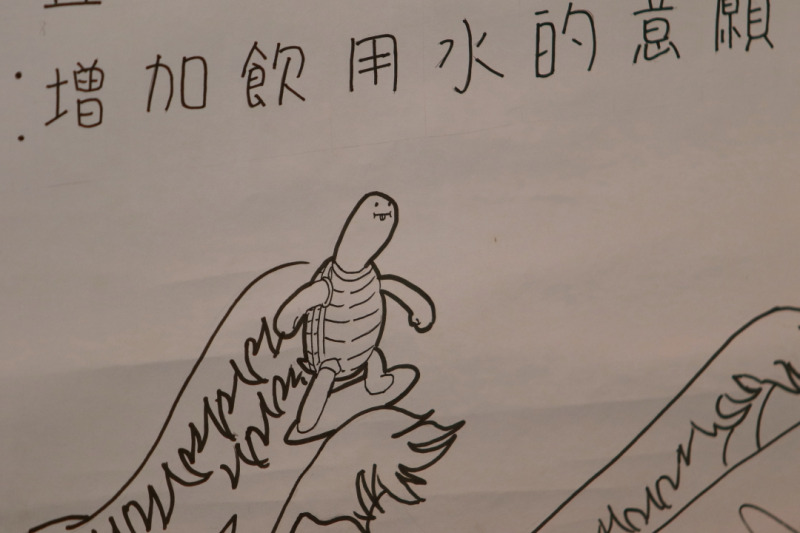 ：增加飲用水的意願